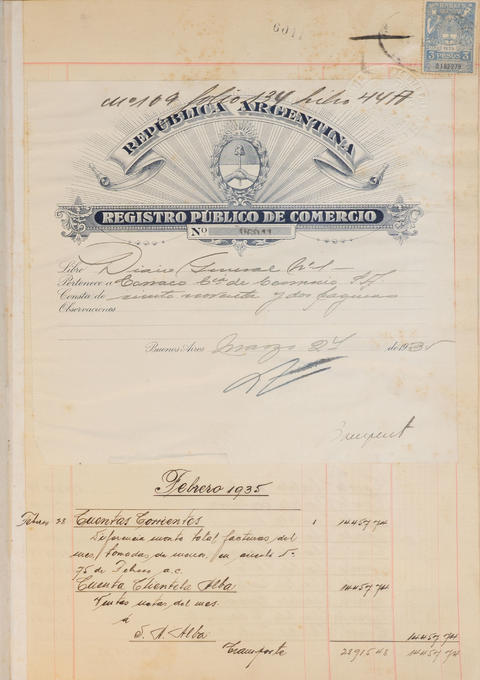 6011
Nº 109 folio 134 libro 44 A
3 PESOS 3
REPÚBLICA ARGENTINA
REGISTRO PÚBLICO DE COMERCIO
Nº
Libro Diario General Nº 1
Pertenece a Cía. de Comercio, S.A.
Consta de ciento noventa y dos páginas
Observaciones
Buenos Aires Marzo 27 de 1935
Febrero 1935
Febrero 28 Cuentas Corrientes 1 14457 74
Diferencia monto total facturas del
mes,
75 de Febrero a.c.
Cuenta Clientela Alba 14457 74
Ventas netas del mes.
á
S. A. Alba 14457 74
Transporte 28915 48 14457 74